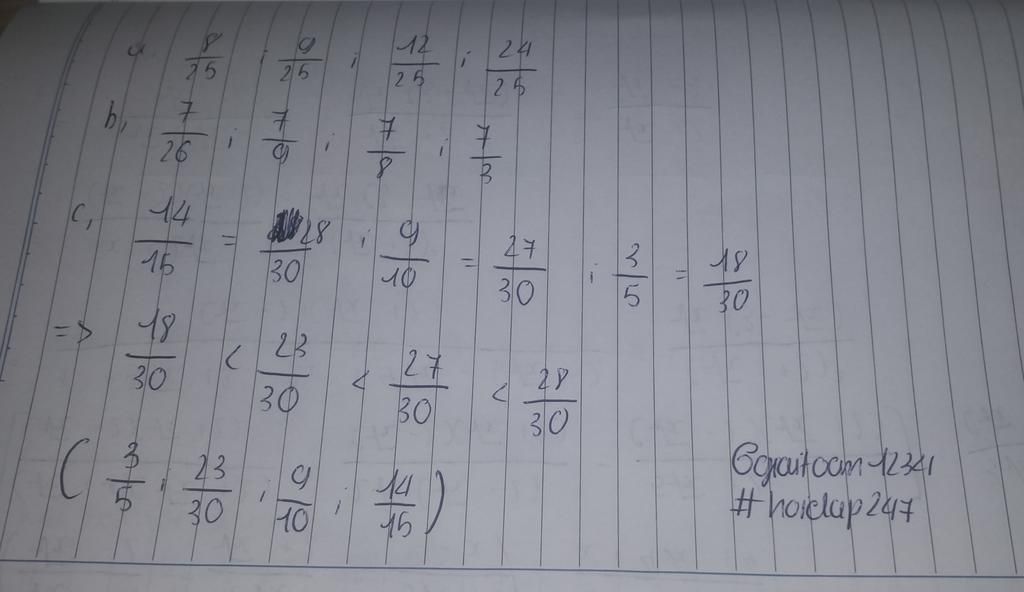 a. 8/25 ; 9/25 ; 12/25 ; 24/25
b, 7/26 ; 7/9 ; 7/8 ; 7/3
c, 14/15 = 28/30 ; 9/10 = 27/30 ; 3/5 = 18/30
=> 18/30 < 23/30 < 27/30 < 28/30
( 3/5 ; 23/30 ; 9/10 ; 14/15 )
#hoidap247